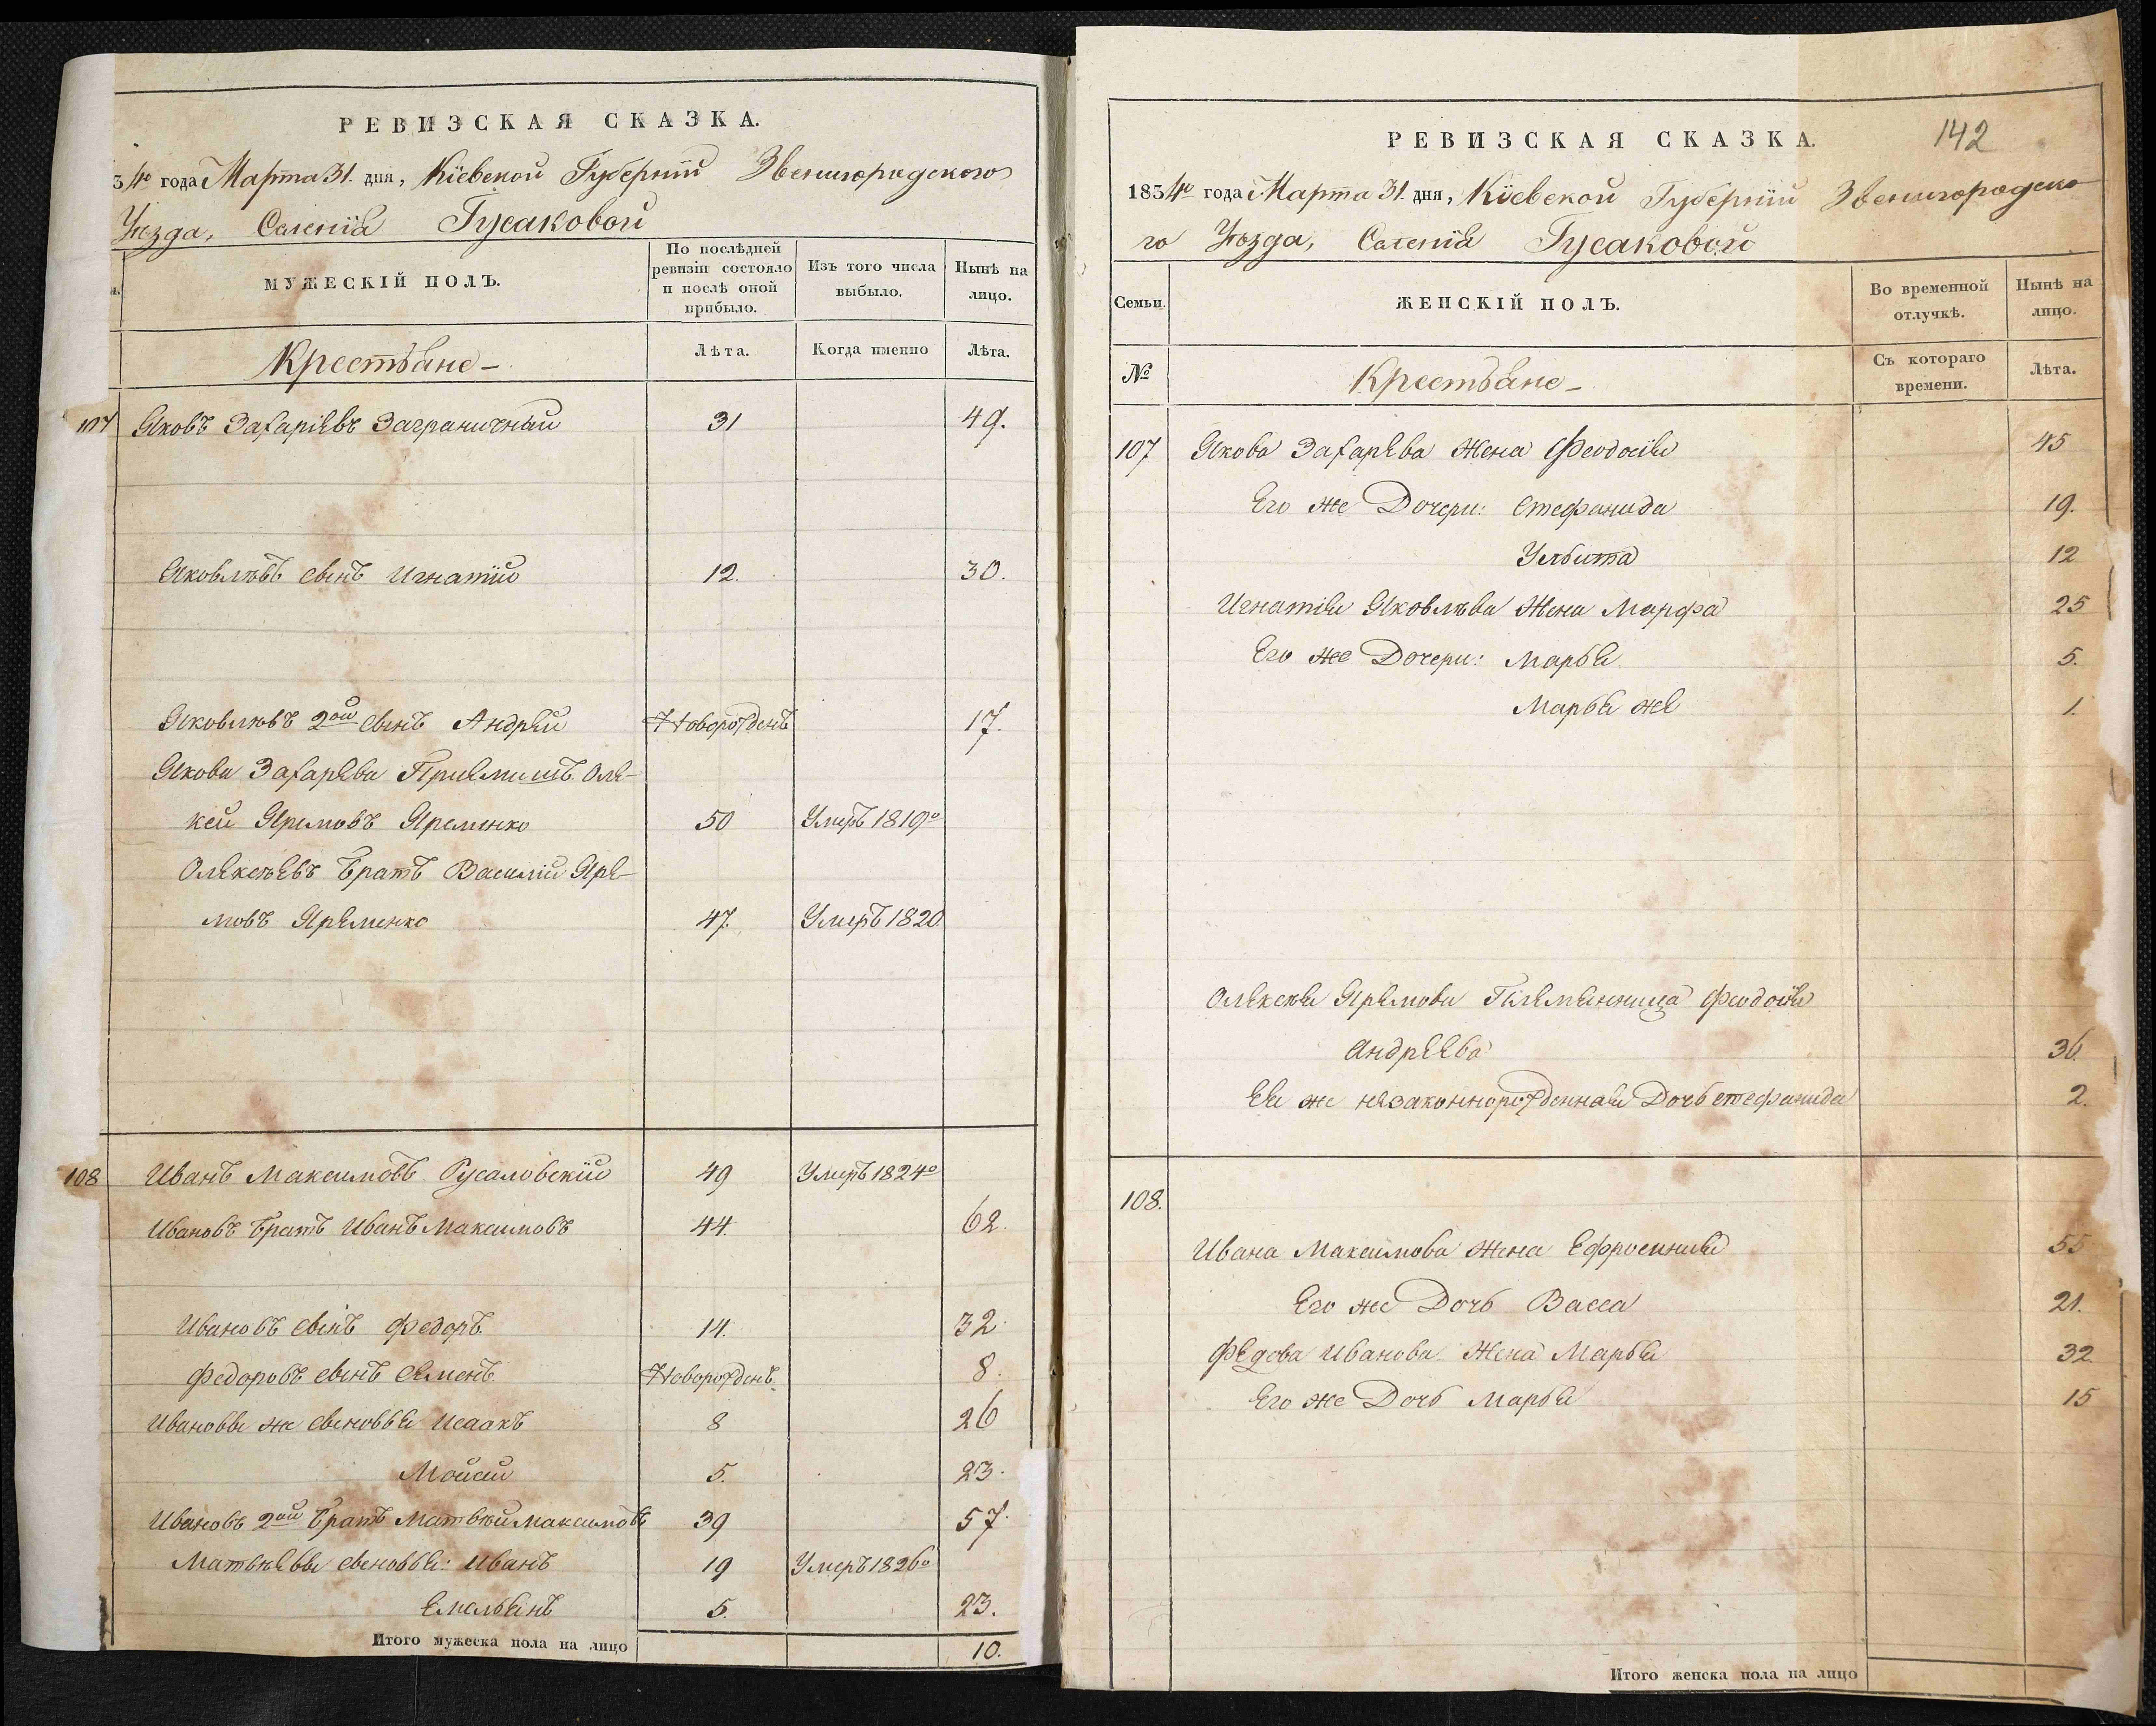 РЕВИЗСКАЯ СКАЗКА.
34го года Марта 31. дня, Кіевской Губерніи Звенигородского
Уѣзда, Селенія Гусаковой
МУЖЕСКІЙ ПОЛЪ.
По послѣдней ревизіи состояло и послѣ оной прибыло.
Изъ того числа выбыло.
Нынѣ на лицо.
Крестьяне
Лѣта.
Когда именно
Лѣта.
107 Яковъ Захаріевъ Заграничный 31 49.
Яковлѣвъ сынъ Игнатій 12. 30.
Яковлѣвъ 2ой сынъ Андрей Новорожденъ 17.
Якова Захарева Приемышъ Оле-
ксей Яремовъ Яременко 50 Умеръ 1819го
Олексѣевъ Братъ Василій Яре-
мовъ Яременко 47. Умеръ 1820
108 Иванъ Максимовъ Русаловскій 49 Умеръ 1824го
Ивановъ Братъ Иванъ Максимовъ 44. 62.
Ивановъ сынъ Федоръ 14. 32
Федоровъ сынъ Семенъ Новорожденъ 8.
Ивановы же сыновья Исаакъ 8 26
Мойсей 5. 23.
Ивановъ 2ой Братъ Матвѣй Максимовъ 39 57.
Матвѣевы сыновья: Иванъ 19 Умеръ 1826го
Емельянъ 5. 23.
Итого мужеска пола на лицо 10.
142
РЕВИЗСКАЯ СКАЗКА.
1834го года Марта 31. дня, Кіевской Губерніи Звенигородско
го Уѣзда, Селенія Гусаковой
Семьи.
ЖЕНСКІЙ ПОЛЪ.
Во временной отлучкѣ.
Нынѣ на лицо.
№
Крестьяне
Съ котораго времени.
Лѣта.
107 Якова Захарева Жена Феодосія 45
Его же Дочери: Стефанида 19.
Улита 12
Игнатія Яковлѣва Жена Марфа 25
Его же Дочери: Марья 5.
Марья же 1.
Олексѣя Яремова Племенница Феодосія
Андреева 36.
Ея же незаконнорожденная Дочь стефанида 2.
108.
Ивана Максимова Жена Ефросинія 55
Его же Дочь Васса 21.
Федора Иванова Жена Марья 32
Его же Дочь Марья 15
Итого женска пола на лицо